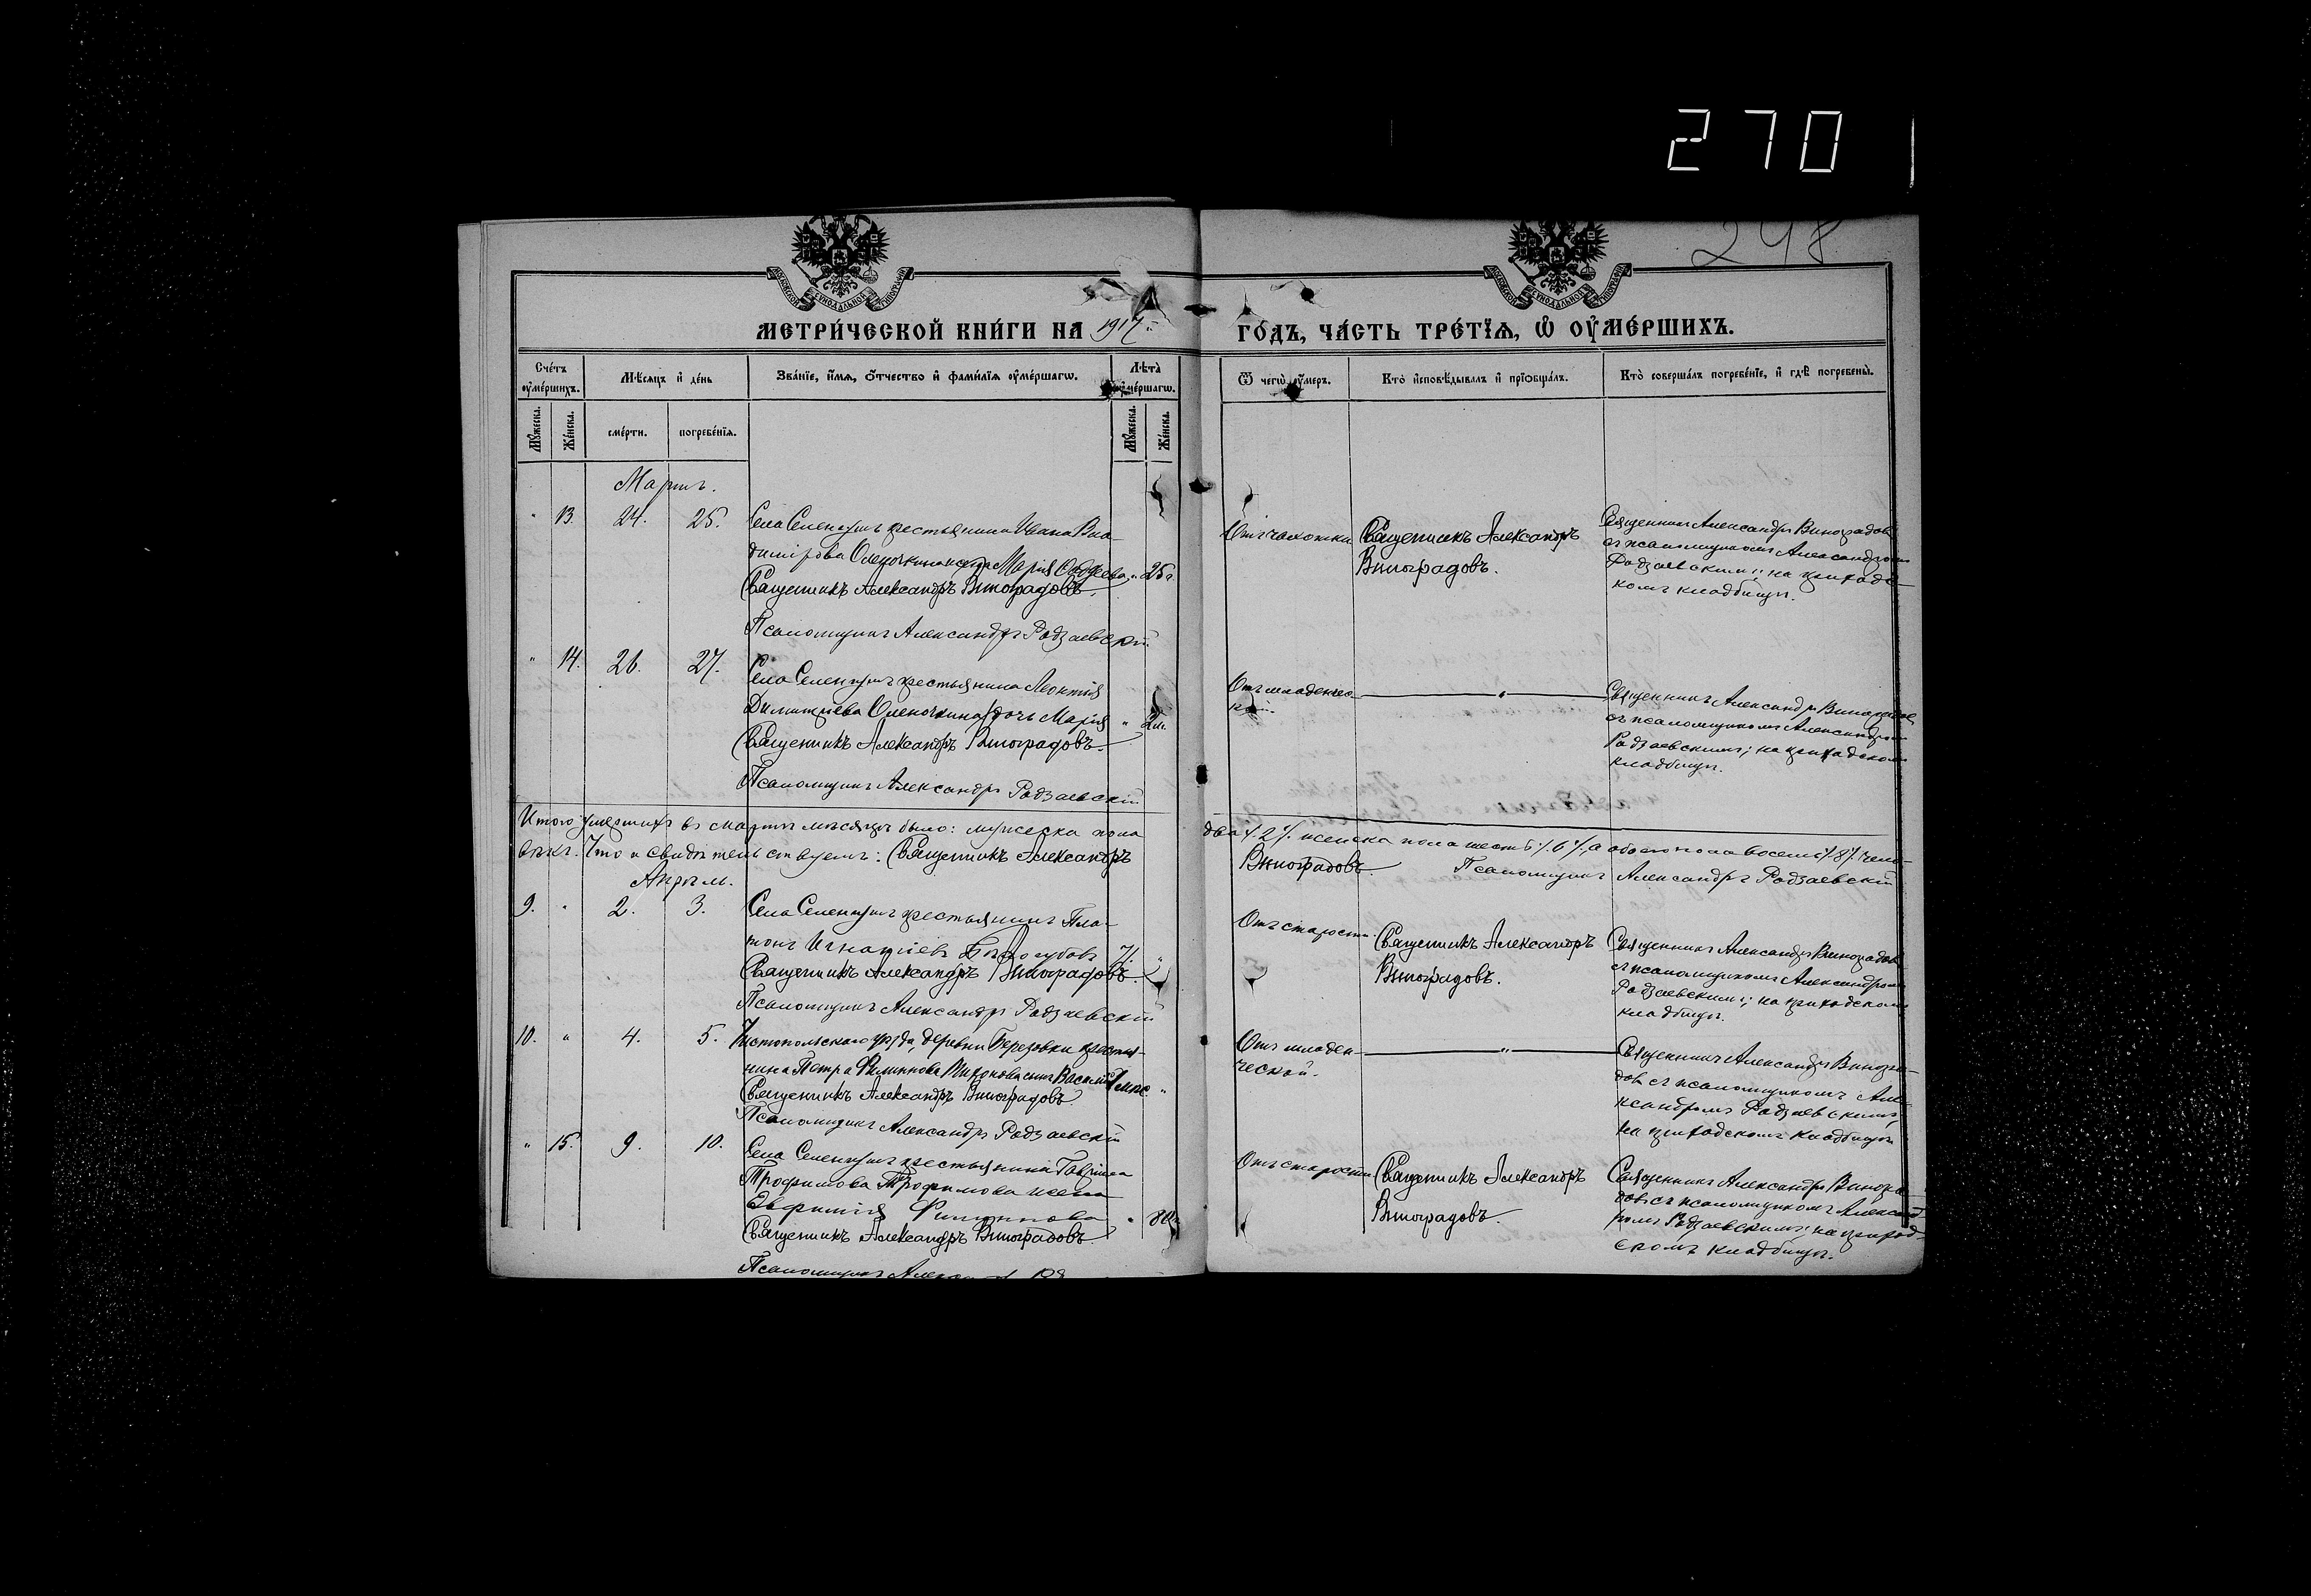 270
248
МЕТРИ́ЧЕСКОЙ КНИ́ГИ НА 1917 г. ГО́ДЪ, ЧА́СТЬ ТРЕ́ТЇѦ, Ѡ҆ ОУ҆МЕ́РШИХЪ.
Сче́тъ оу҆ме́ршихъ.
Мѣ́сѧцъ и҆ де́нь
Зва́нїе, и҆́мѧ, ѻ҆́тчество и҆ фами́лїѧ оу҆ме́ршагѡ.
Лѣ́та оу҆ме́ршагѡ.
Ѿ чегѡ̀ оу҆́меръ.
Кто̀ и҆сповѣ́дывалъ и҆ прїѡбща́лъ.
Кто̀ соверша́лъ погребе́нїе, и҆ гдѣ̀ погребены̀.
Мꙋ́жеска.
Же́нска.
сме́рти.
погребе́нїѧ.
Мꙋ́жеска.
Же́нска.
Мартъ.
" 13. 24. 25.
Села крестьянина Ивана Вла-
димірова Оленочкина Марія " 25 г.
Священникъ Александръ Виноградовъ.
Псаломщикъ Александръ Родзаевскій
Отъ чахотки
Священникъ Александръ
Виноградовъ.
Священникъ Александръ Виноградовъ
съ псаломщикомъ Александромъ
Родзаевскимъ; на приход-
комъ кладбищѣ.
" 14. 26. 27.
Села крестьянина Леонтія
Димитріева Оленочкина дочь Марія " 2 м.
Священникъ Александръ Виноградовъ.
Псаломщикъ Александръ Родзаевскій
Отъ младенчес-
кой.
"
Священникъ Александръ Виноградовъ
съ псаломщикомъ Александромъ
Родзаевскимъ; на приходскомъ
кладбищѣ.
Итого умершихъ въ мартѣ мѣсяцѣ было: мужеска пола два /. 2 /. женска пола шесть /. 6 /., а обоего пола восемь /. 8 /. чело-
вѣкъ. Что и свидѣтельствуемъ: Священникъ Александръ Виноградовъ Псаломщикъ Александръ Родзаевскій
Апрѣль.
9. " 2. 3.
Села крестьянинъ Пла-
тонъ Игнатіевъ 71. "
Священникъ Александръ Виноградовъ.
Псаломщикъ Александръ Родзаевскій
Отъ старости.
Священникъ Александръ
Виноградовъ.
Священникъ Александръ Виноградовъ
съ псаломщикомъ Александромъ
Родзаевскимъ; на приходскомъ
кладбищѣ.
10. " 4. 5.
Чистопольскаго уѣзда, деревни Березовки крестья-
нина Петра Филиппова сынъ Василій "
Священникъ Александръ Виноградовъ
Псаломщикъ Александръ Родзаевскій
Отъ младен-
ческой.
"
Священникъ Александръ Виногра-
довъ съ псаломщикомъ Але-
ксандромъ Родзаевскимъ;
на приходскомъ кладбищѣ
" 15. 9. 10.
Села крестьянина Гавріила
Трофимова Трофимова жена
Евфимія Филиппова " 80 г.
Священникъ Александръ Виноградовъ
Псаломщикъ
Отъ старости
Священникъ Александръ
Виноградовъ.
Священникъ Александръ Виногра-
довъ съ псаломщикомъ Александ-
ромъ Родзаевскимъ; на приход-
скомъ кладбищѣ.